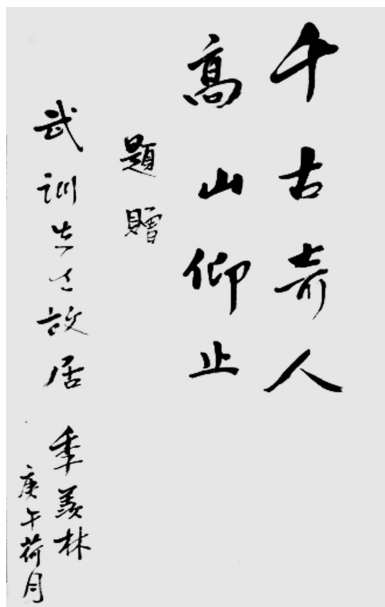 千古奇人
高山仰止
題贈
武训先生故居
季羡林
庚午荷月